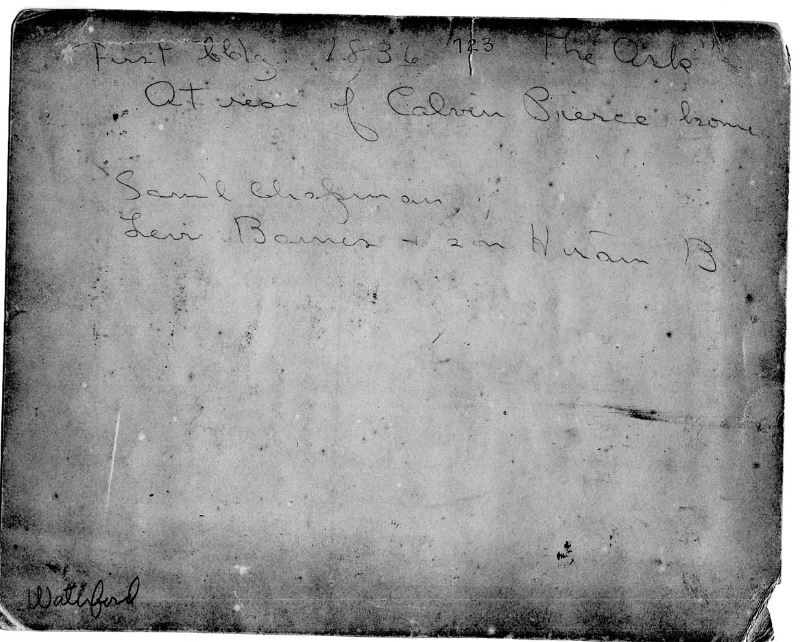 First bldg. 1836 123 "The Ark"
At rear of Calvin Pierce home
Sam'l Chapman,
Levi Barnes + son Hiram B
Watterford